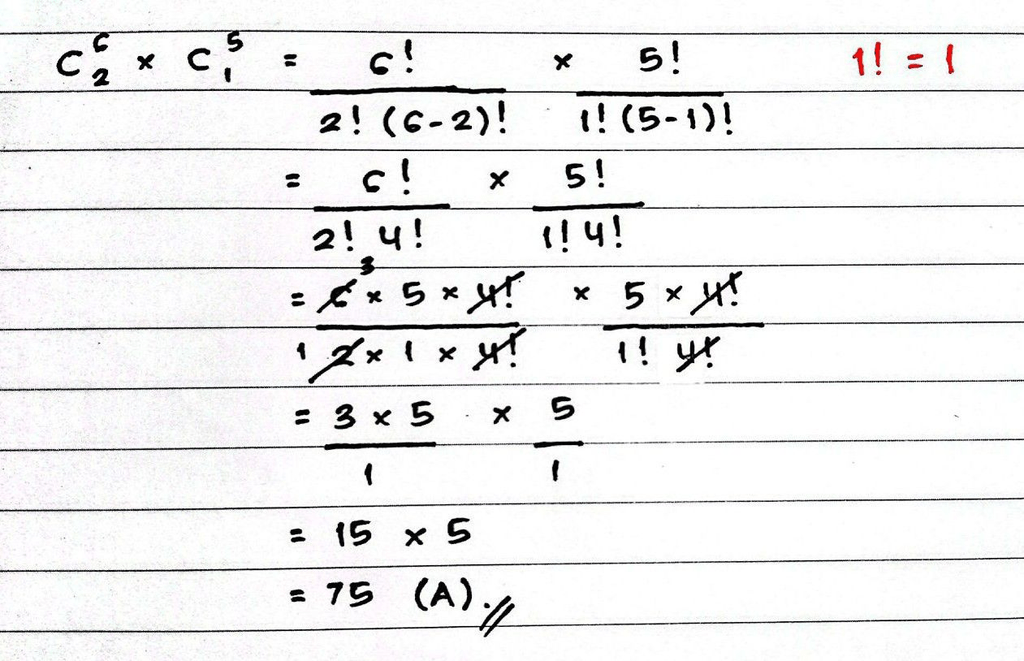 C⁶₂ × C⁵₁ = 6! / 2! (6-2)! × 5! / 1! (5-1)! 1! = 1
= 6! / 2! 4! × 5! / 1! 4!
= 6 3 × 5 × 4! / 1 2 × 1 × 4! × 5 × 4! / 1! 4!
= 3 × 5 / 1 × 5 / 1
= 15 × 5
= 75 (A).//